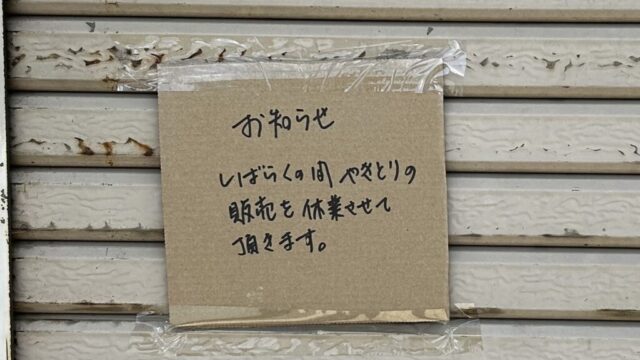 お知らせ
しばらくの間 やきとりの
販売を休業させて
頂きます。